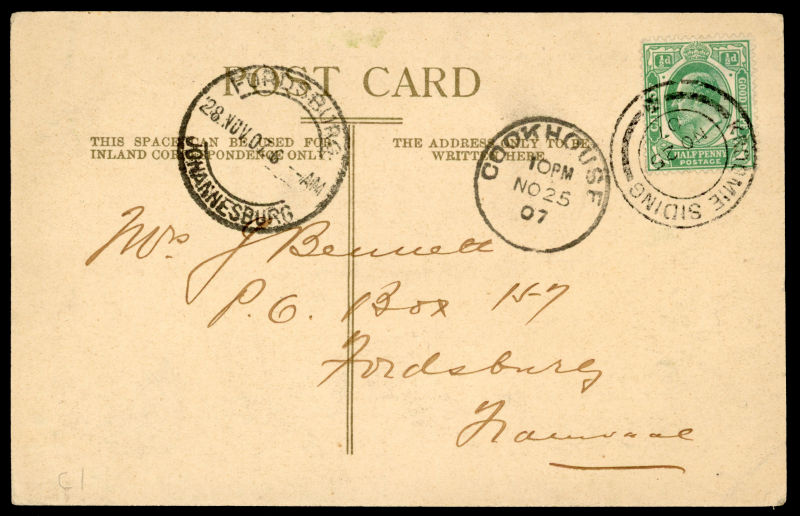 POST CARD
THIS SPACE CAN BE USED FOR
INLAND CORRESPONDENCE ONLY.
THE ADDRESS ONLY TO BE
WRITTEN HERE.
FORDSBURG
28. NOV. 07
AM
JOHANNESBURG
COOKHOUSE
10PM
NO 25
07
SIDING
NO 25
½d ½d
GOOD
HALF PENNY
POSTAGE
Mrs J Bennett
P.O. Box 157
Fordsburg
Transvaal
C1